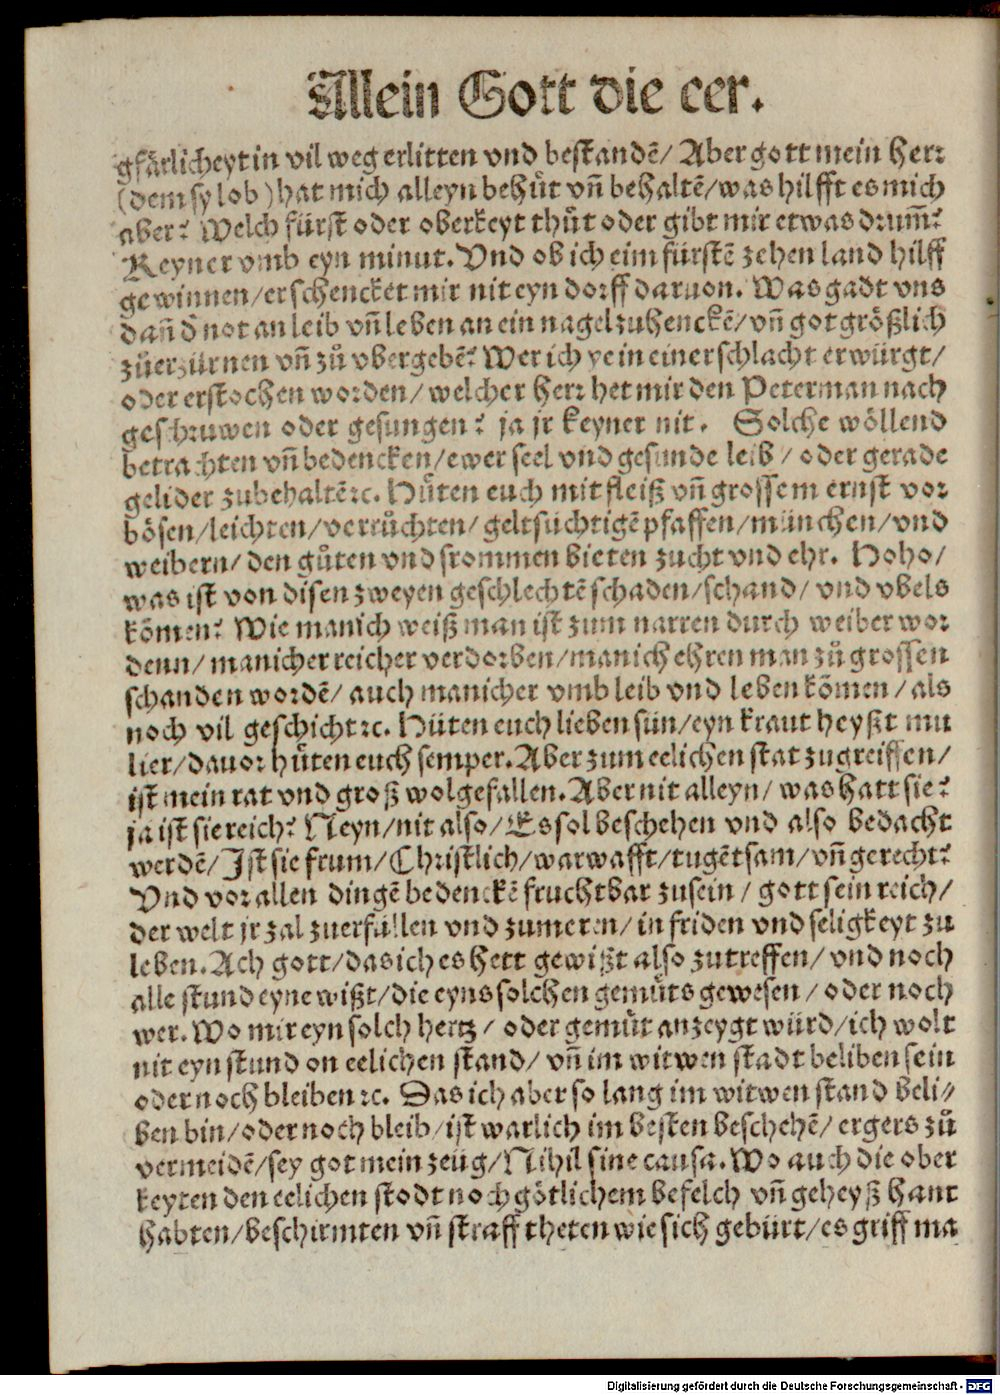 Allein Gott die eer.
gfärlicheyt in vil weg erlitten vnd bestandē/ Aber gott mein herr
(dem sy lob) hat mich alleyn behuͤt vñ behaltē/ was hilfft es mich
aber? Welch fürst oder oberkeyt thuͤt oder gibt mir etwas drum̃?
Keyner vmb eyn minut. Vnd ob ich eim fürstē zehen land hilff
gewinnen/ er schencket mir nit eyn dorff daruon. Was gadt vns
dañ d̄ not an leib vñ leben an ein nagel zuhenckē/ vñ got größlich
zuͤerzürnen vñ zuͦ vbergebē? Wer ich ye in einer schlacht erwürgt/
oder erstochen worden/ welcher herr het mir den Peterman nach
geschruwen oder gesungen? ja jr keyner nit. Solche wöllend
betrachten vñ bedencken/ ewer seel vnd gesunde leib/ oder gerade
gelider zubehaltē ꝛc. Huͤten euch mit fleiß vñ grossem ernst vor
bösen/ leichten/ verruͤchten/ geltsüchtigē pfaffen/ münchen/ vnd
weibern/ den guͤten vnd frommen bieten zucht vnd ehr. Hoho/
was ist von disen zweyen geschlechtē schaden/ schand/ vnd vbels
kōmen? Wie manich weiß man ist zum narren durch weiber wor
denn/ manicher reicher verdorben/ manich ehren man zuͦ grossen
schanden wordē/ auch manicher vmb leib vnd leben kōmen/ als
noch vil geschicht ꝛc. Hüten euch lieben sün/ eyn kraut heyßt mu
lier/ dauor huͤten euch semper. Aber zum eelichen stat zugreiffen/
ist mein rat vnd groß wolgefallen. Aber nit alleyn/ was hatt sie?
ja ist sie reich? Neyn/ nit also/ Es sol beschehen vnd also bedacht
werdē/ Ist sie frum/ Christlich/ warwafft/ tugētsam/ vñ gerecht?
Vnd vor allen dingē bedenckē fruchtbar zusein/ gott sein reich/
der welt jr zal zuerfüllen vnd zumeren/ in friden vnd seligkeyt zu
leben. Ach gott/ das ich es hett gewißt also zutreffen/ vnd noch
alle stund eyne wißt/ die eyns solchen gemuͤts gewesen/ oder noch
wer. Wo mir eyn solch hertz/ oder gemuͤt anzeygt würd/ ich wolt
nit eyn stund on eelichen stand/ vñ im witwen stadt beliben sein
oder noch bleiben ꝛc. Das ich aber so lang im witwen stand beli⸗
ben bin/ oder noch bleib/ ist warlich im besten beschehē/ ergers zuͦ
vermeidē/ sey got mein zeüg/ Nihil sine causa. Wo auch die ober
keyten den eelichen stodt noch götlichem befelch vñ geheyß hant
habten/ beschirmten vñ straff theten wie sich gebürt/ es griff ma
Digitalisierung gefördert durch die Deutsche Forschungsgemeinschaft - DFG